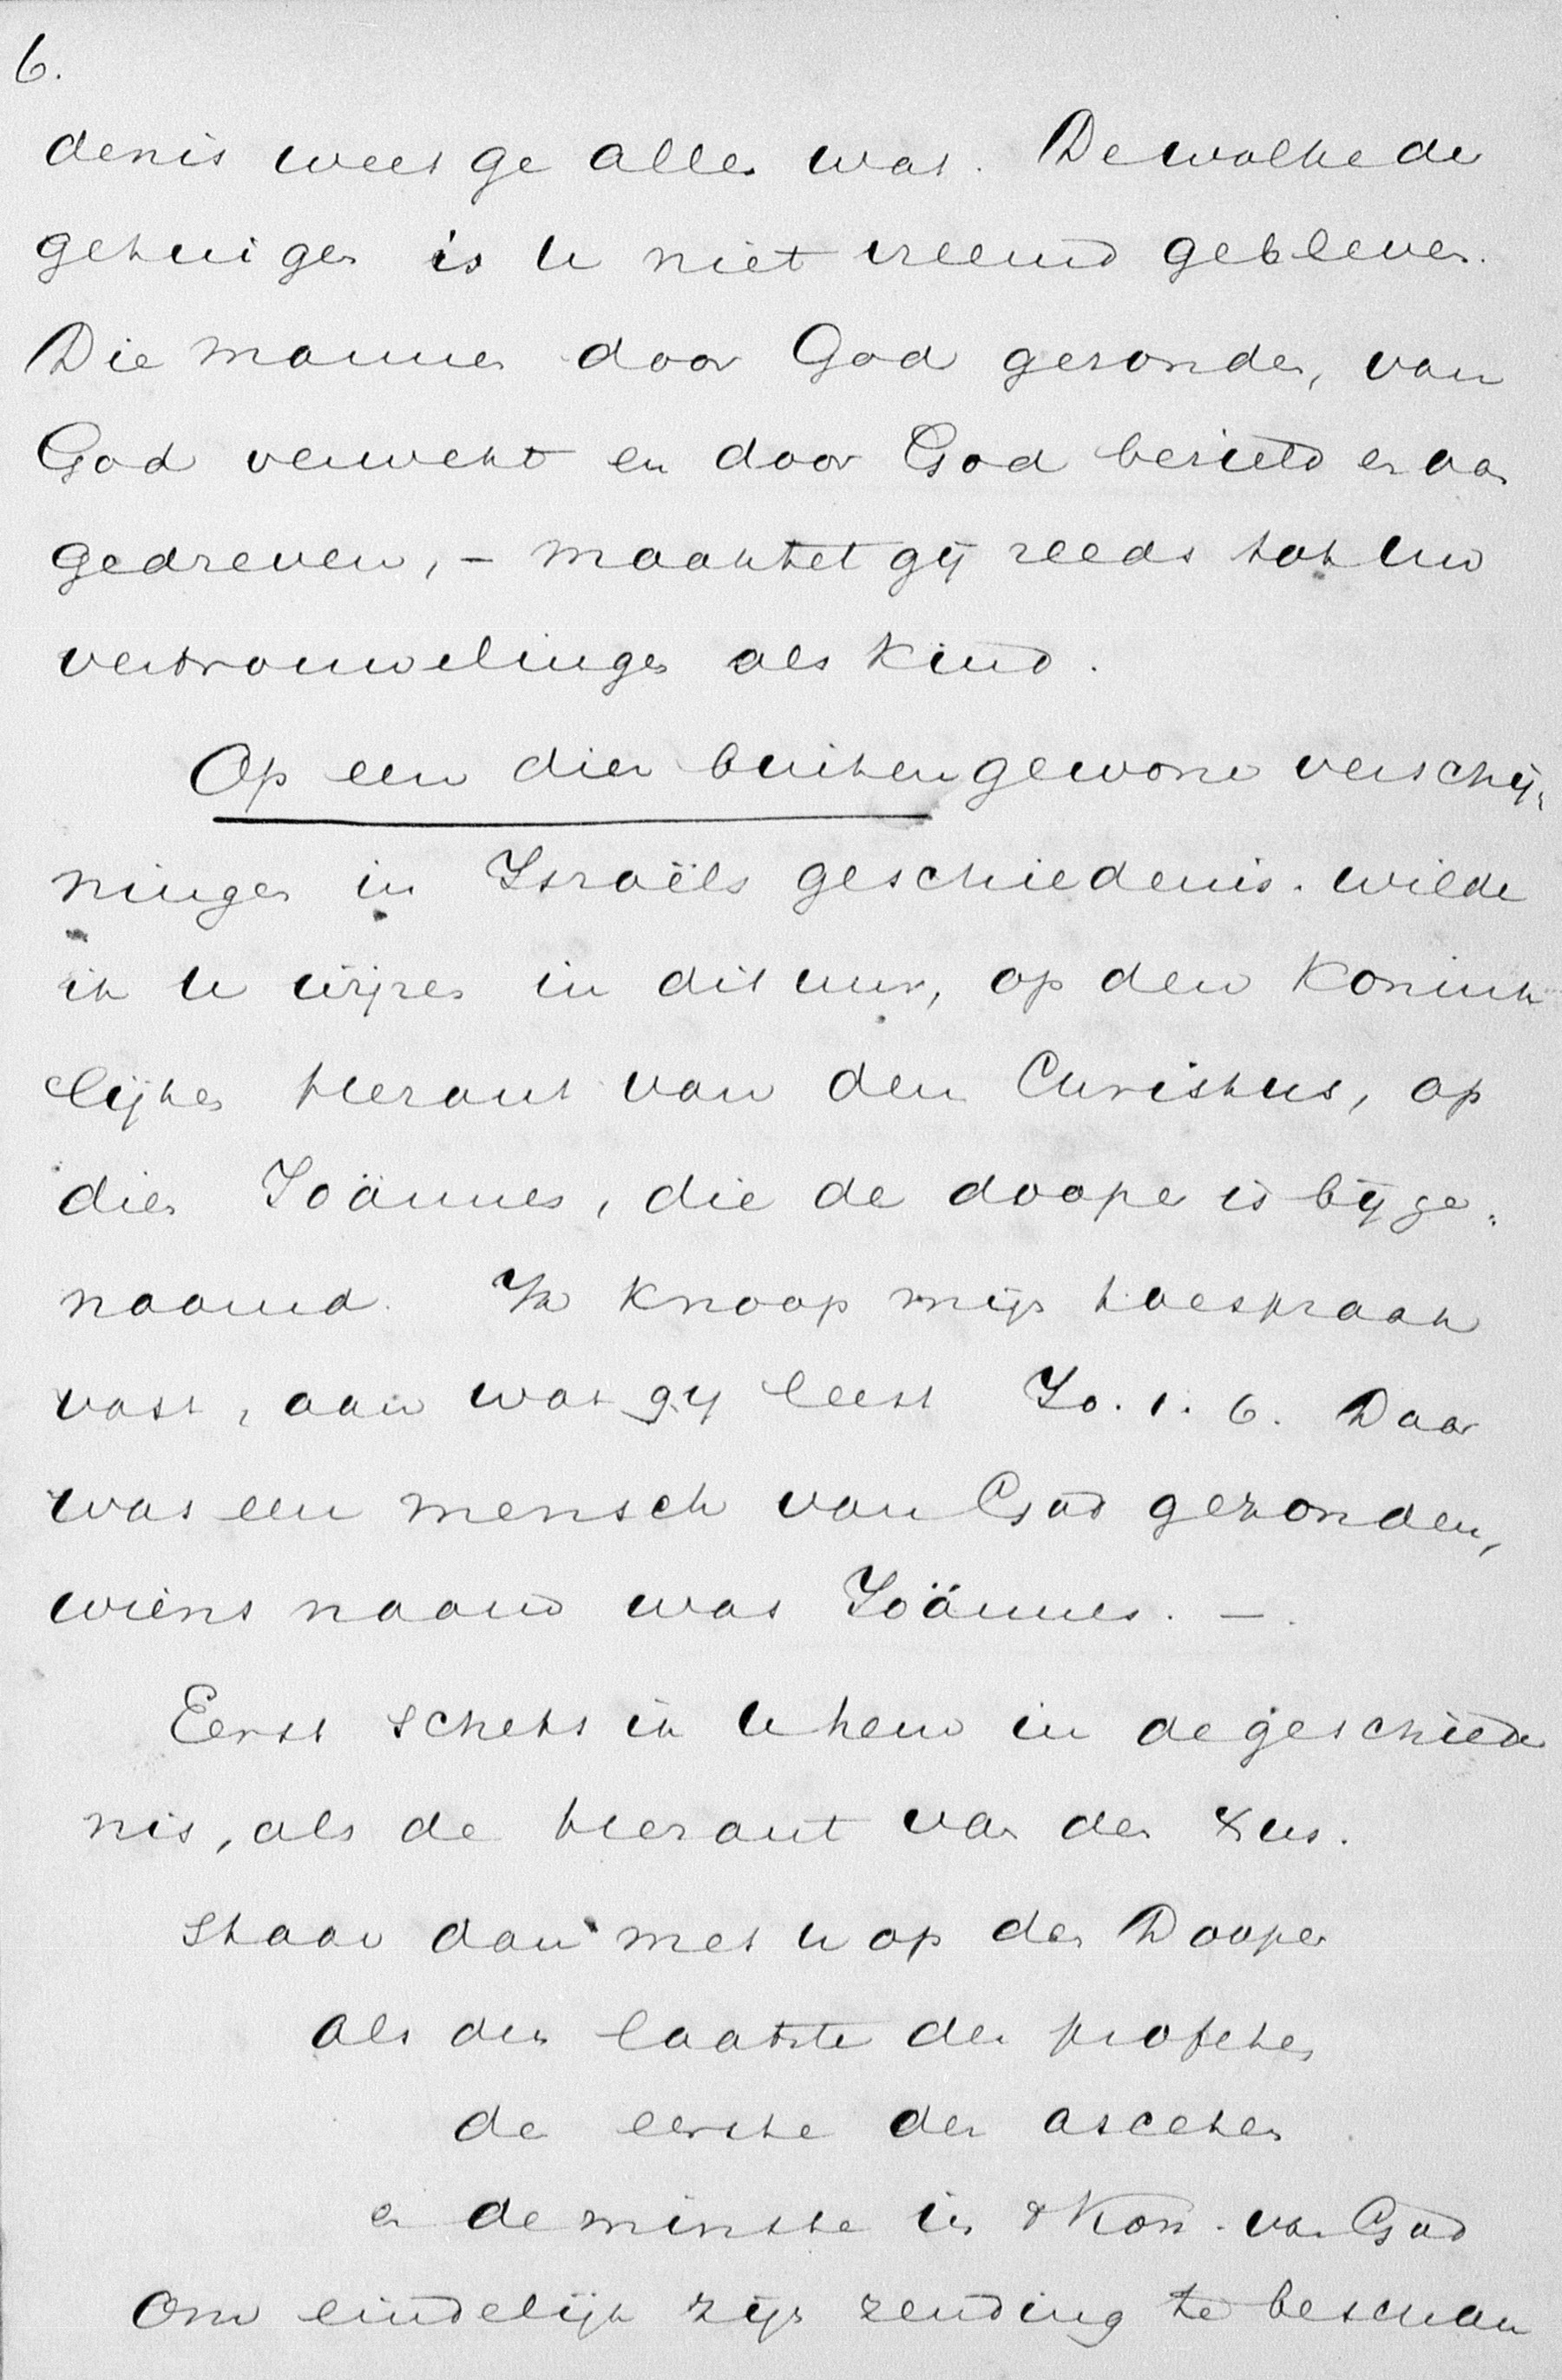 6.
denis weet ge alles wat. De wolke der
getuigen is U niet vreemd gebleven.
Die mannen door God gezonden, van
God verwekt en door God bezield en aan
gedreven, – maaktet gij reeds tot uw
vertrouwelingen als kind.
Op een dier buitengewone verschij=
ningen in Israëls geschiedenis wilde
ik U wijzen in dit uur, op den Konink
lijken Heraut van den Christus, op
dien Joännes, die de dooper is bijge=
naamd. Ik knoop mijn toespraak
vast, aan wat gij leest Jo. 1. 6. Daar
was een mensch van God gezonden,
wiens naam was Joännes. –
Eerst schets ik U hem in de geschiede
nis, als de Heraut van den Xus.
Staar dan met u op den Dooper
als den laatste der profeten
de eerste der asceten
en de minste in 't Kon. van God
Om eindelijk zijn zending te beschou